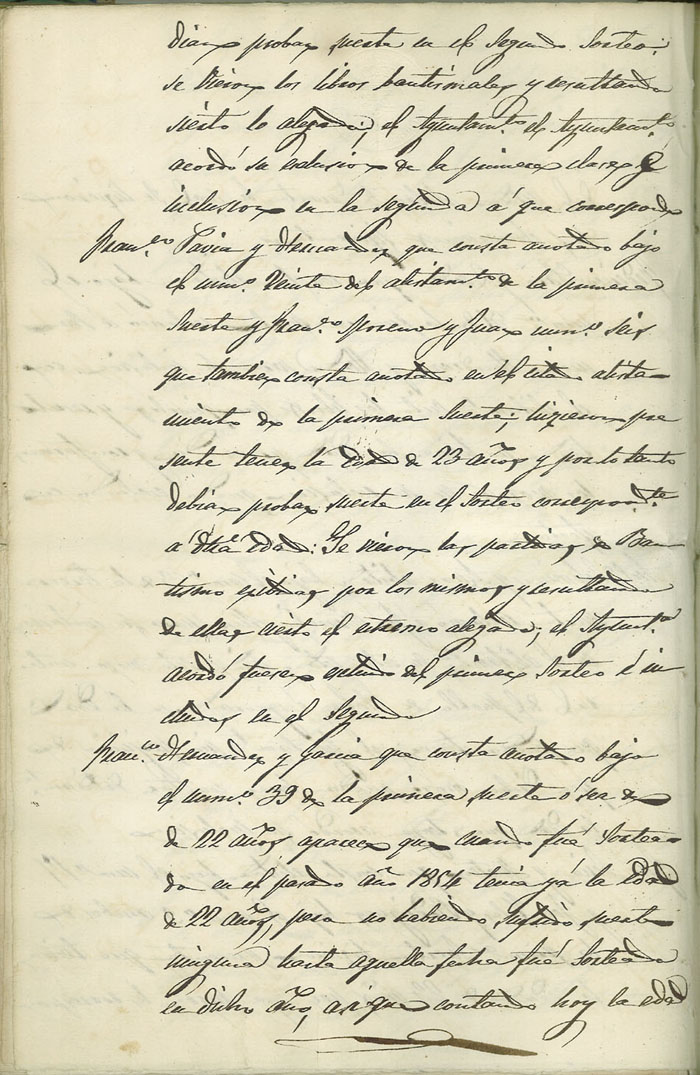 dian probar suerte en el segundo sorteo:
se vieron los libros bautismales y resultando
siérto lo alegado, el Ayuntam.to el Ayuntam.to
acordó su esclusion de la primera clase é
inclusion en la segunda á que corresponde
Fran.co Tavira y Hernandez que consta anotado bajo
el num.o veinte del alistam.to de la primera
suerte y Fran.co Moreno y Juan num.o seis
que tambien consta anotado en el citado alista-
miento de la primera suerte; hizieron pre
sente tener la edad de 23 años y por lo tanto
debian probar suerte en el sorteo correspond.te
á dha edad: Se vieron las partidas de Bau
tismo exibidas por los mismos y resultando
de ellas cierto el estremo alegado; el Ayunt.o
acordó fueren escluidos del primer sorteo é in
cluidos en el segundo
Fran.co Hernandez y Garcia que consta anotado bajo
el num.o 39 de la primera suerte ó sea de
de 22 años aparece que cuando fué sortea-
do en el pasado año 1854 tenia yá la edad
de 22 años, pero no habiendo sufrido suerte
ninguna hasta aquella fecha fué sorteado
en dicho año, asi que contando hoy la edad